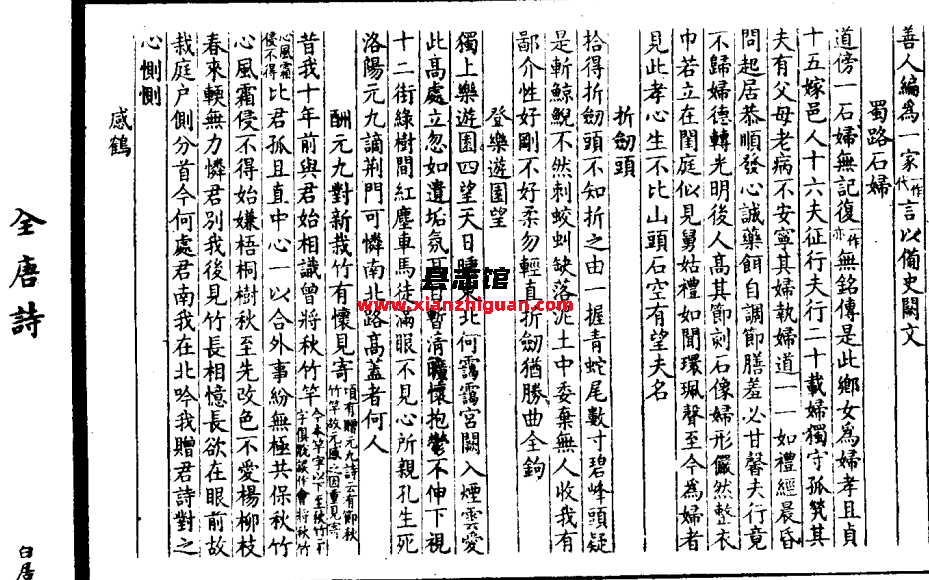 善人編爲一家一作代言以備史闕文
蜀路石婦
道傍一石婦無記復一作亦無銘傳是此鄉女爲婦孝且貞
十五嫁邑人十六夫征行夫行二十載婦獨守孤煢其
夫有父母老病不安寧其婦執婦道一一如禮經晨昏
問起居恭順發心誠藥餌自調節膳羞必甘馨夫行竟
不歸婦德轉光明後人高其節刻石像婦形儼然整衣
巾若立在閨庭似見舅姑禮如聞環珮聲至今爲婦者
見此孝心生不比山頭石空有望夫名
折劒頭
拾得折劒頭不知折之由一握青蛇尾數寸碧峰頭疑
是斬鯨鯢不然刺蛟虬缺落泥土中委棄無人收我有
鄙介性好剛不好柔勿輕直折劒猶勝曲全鉤
登樂遊園望
獨上樂遊園四望天日曛東北何靄靄宮闕入煙雲愛
此高處立忽如遺垢氛耳目暫清曠懷抱鬱不伸下視
十二街綠樹間紅塵車馬徒滿眼不見心所親孔生死
洛陽元九謫荆門可憐南北路高蓋者何人
酬元九對新栽竹有懷見寄頃有贈元九詩云有節秋竹竿故元感之因重見寄
昔我十年前與君始相識曾將秋竹竿
心風霜侵不得比君孤且直中心一以合外事紛無極共保秋竹
心風霜侵不得始嫌梧桐樹秋至先改色不愛楊柳枝
春來輭無力憐君別我後見竹長相憶長欲在眼前故
栽庭户側分首今何處君南我在北吟我贈君詩對之
心惻惻
感鶴
全唐詩
白居
县志馆
www.xianzhiguan.com